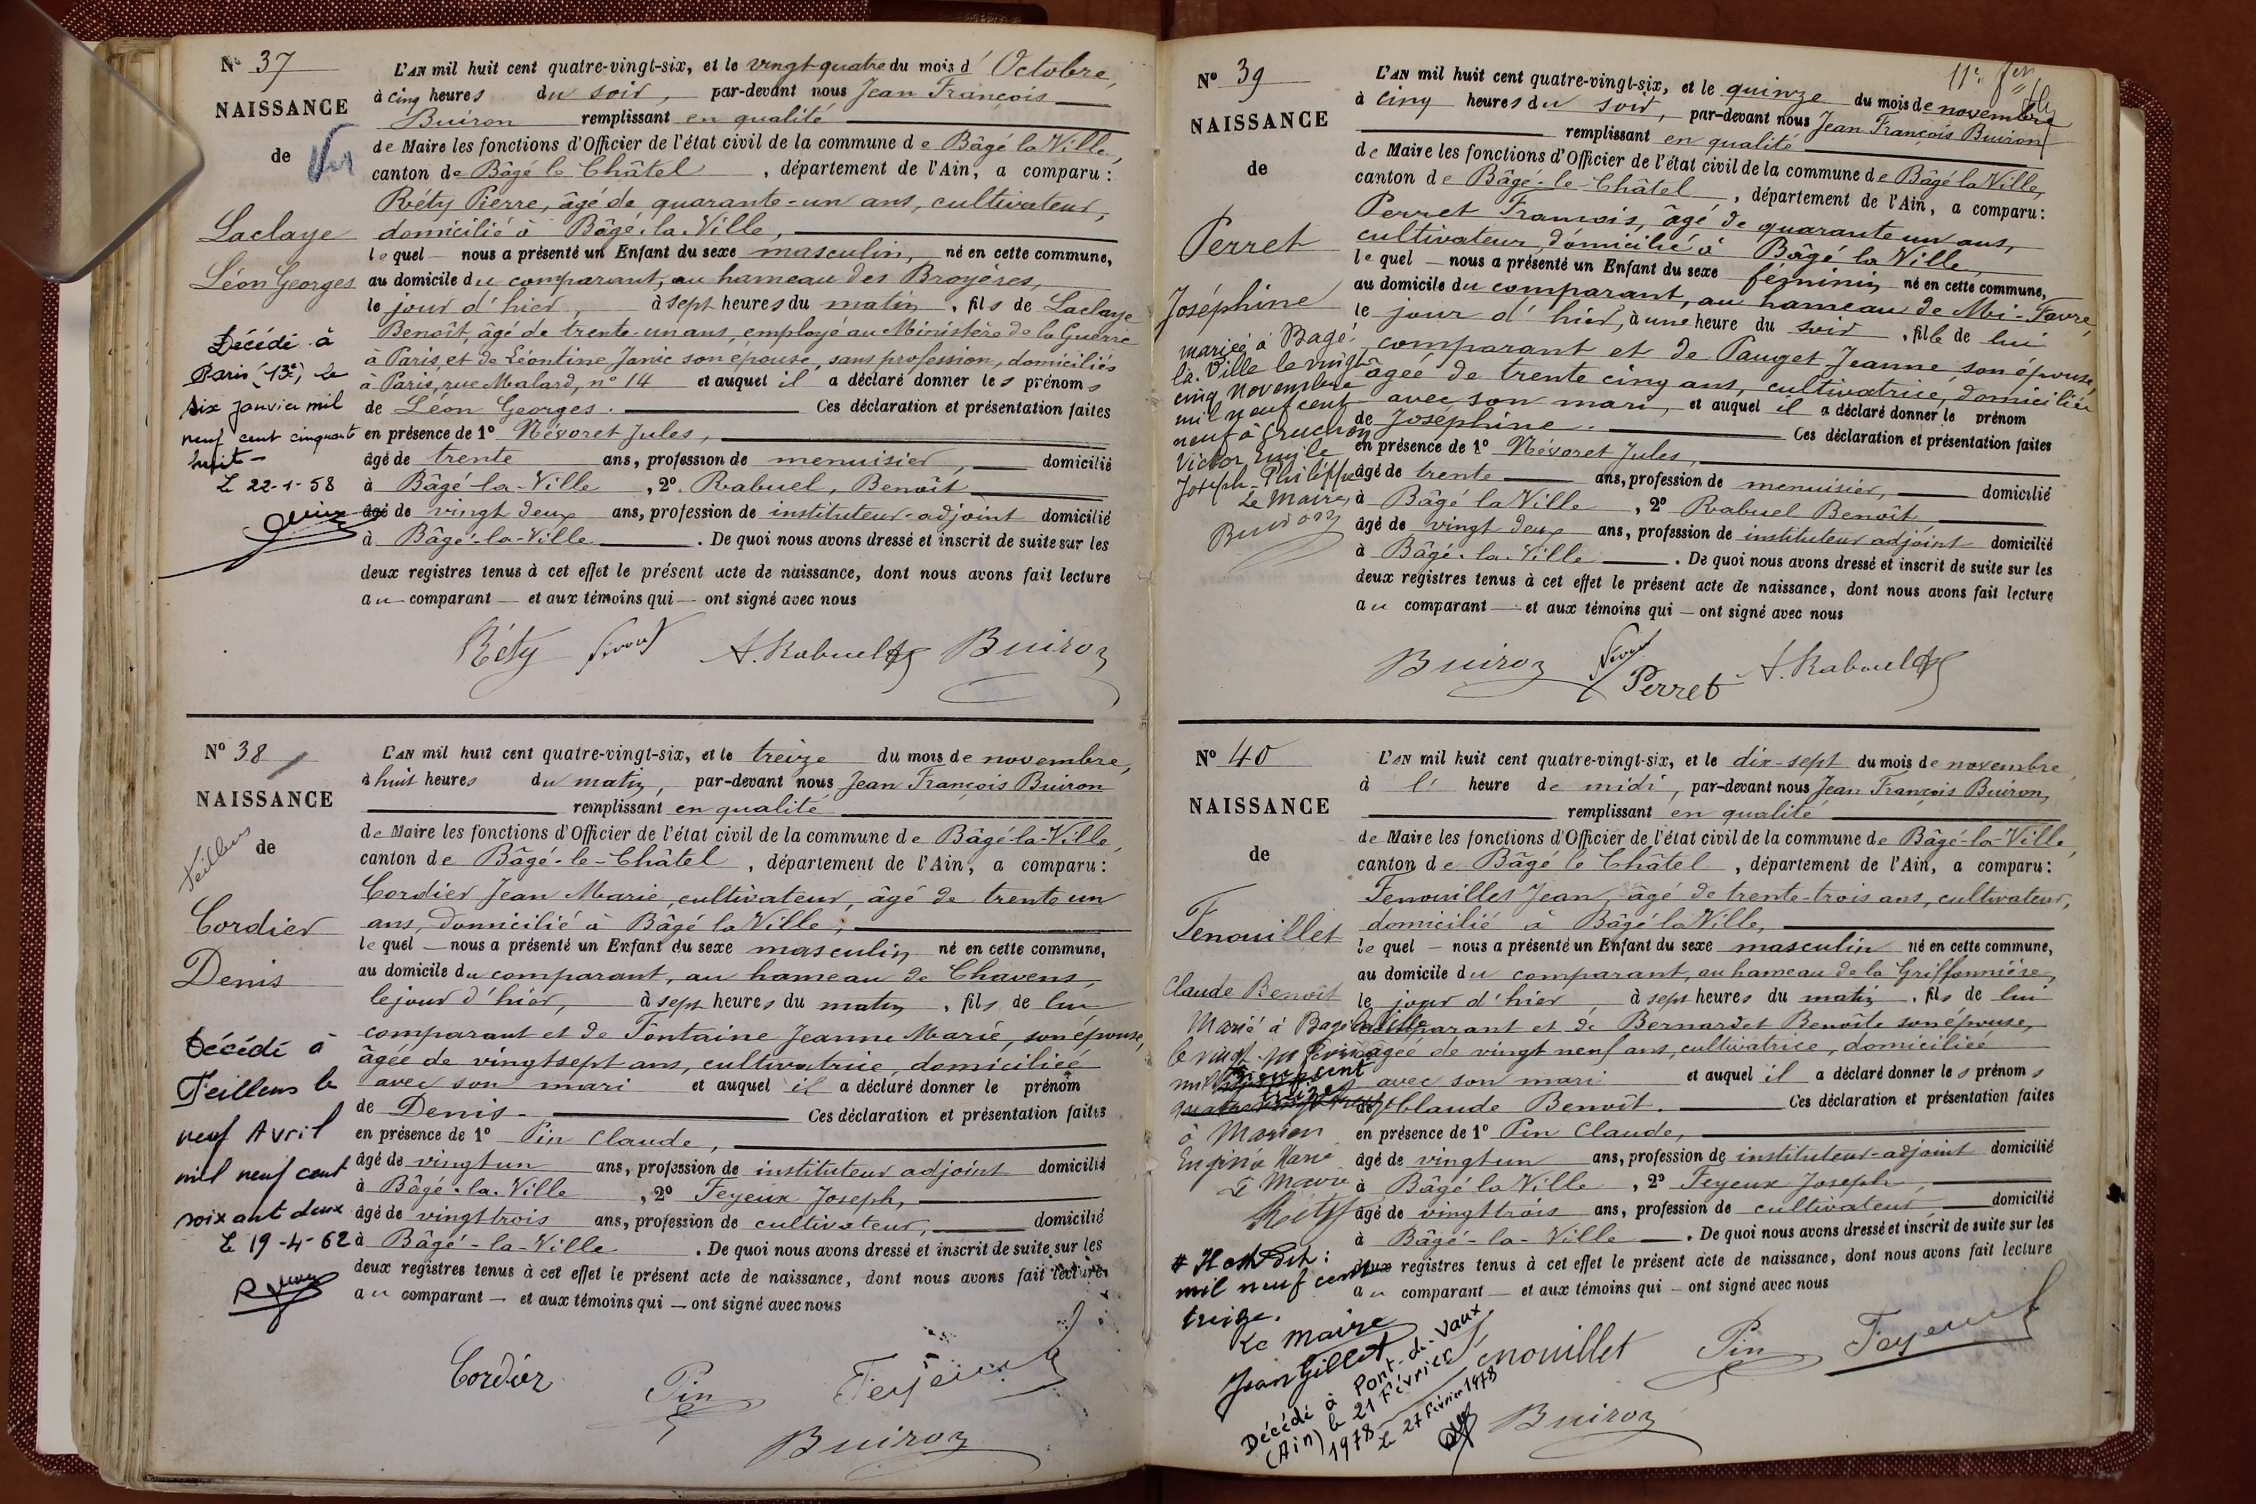 Nº 37
NAISSANCE
de
Laclaye
Léon Georges
Décédé à
Paris (13e) le
six janvier mil
neuf cent cinquante
huit -
Le 22-1-58
L'AN mil huit cent quatre-vingt-six, et le vingt-quatre du mois d' Octobre,
à cinq heures du soir, par-devant nous Jean François
Buiron remplissant en qualité
de Maire les fonctions d'Officier de l'état civil de la commune de Bâgé la Ville,
canton de Bâgé le Châtel, département de l'Ain, a comparu :
Réty Pierre, âgé de quarante-un ans, cultivateur,
domicilié à Bâgé-la-Ville,
lequel nous a présenté un Enfant du sexe masculin, né en cette commune,
au domicile du comparant, au hameau des Broyères,
le jour d'hier, à sept heures du matin, fils de Laclaye
Benoît, âgé de trente-un ans, employé au Ministère de la Guerre
à Paris, et de Léontine Janic son épouse, sans profession, domiciliés
à Paris, rue Malard, nº 14 et auquel il a déclaré donner les prénoms
de Léon Georges. Ces déclaration et présentation faites
en présence de 1º Névoret Jules,
âgé de trente ans, profession de menuisier, domicilié
à Bâgé-la-Ville, 2º Rabuel, Benoît
âgé de vingt deux ans, profession de instituteur-adjoint domicilié
à Bâgé-la-Ville. De quoi nous avons dressé et inscrit de suite sur les
deux registres tenus à cet effet le présent acte de naissance, dont nous avons fait lecture
au comparant et aux témoins qui ont signé avec nous
Réty A. Rabuel Buiron
Nº 38
NAISSANCE
de
Feillens
Cordier
Denis
Décédé à
Feillens le
neuf Avril
mil neuf cent
soixant deux
Le 19-4-62
L'AN mil huit cent quatre-vingt-six, et le treize du mois de novembre,
à huit heures du matin, par-devant nous Jean François Buiron
remplissant en qualité
de Maire les fonctions d'Officier de l'état civil de la commune de Bâgé-la-Ville,
canton de Bâgé-le-Châtel, département de l'Ain, a comparu :
Cordier Jean Marie, cultivateur, âgé de trente un
ans, domicilié à Bâgé la Ville ;
lequel nous a présenté un Enfant du sexe masculin né en cette commune,
au domicile du comparant, au hameau de Chavens,
le jour d'hier, à sept heures du matin, fils de lui
comparant et de Fontaine Jeanne Marie, son épouse,
âgée de vingt sept ans, cultivatrice, domiciliée
avec son mari et auquel il a déclaré donner le prénom
de Denis - Ces déclaration et présentation faites
en présence de 1º Pin Claude,
âgé de vingt un ans, profession de instituteur adjoint domicilié
à Bâgé-la-Ville, 2º Feyeux Joseph,
âgé de vingt trois ans, profession de cultivateur, domicilié
à Bâgé-la-Ville. De quoi nous avons dressé et inscrit de suite sur les
deux registres tenus à cet effet le présent acte de naissance, dont nous avons fait lecture
au comparant et aux témoins qui ont signé avec nous
Cordier Pin Feyeux
Buiron
Nº 39
NAISSANCE
de
Perret
Joséphine
mariée à Bagé
la Ville le vingt
cinq Novembre
mil neuf cent
neuf à Gruchon
Victor Emile
Joseph-Philippe
Le Maire,
Buiron
L'AN mil huit cent quatre-vingt-six, et le quinze du mois de novembre
à cinq heures du soir, par-devant nous Jean François Buiron
remplissant en qualité
de Maire les fonctions d'Officier de l'état civil de la commune de Bâgé la Ville,
canton de Bâgé-le-Châtel, département de l'Ain, a comparu :
Perret François, âgé de quarante un ans,
cultivateur, domicilié à Bâgé la Ville,
lequel nous a présenté un Enfant du sexe féminin né en cette commune,
au domicile du comparant, au hameau de Mi-Favre,
le jour d'hier, à une heure du soir, fille de lui
comparant et de Pauget Jeanne, son épouse,
âgée de trente cinq ans, cultivatrice, domiciliée
avec son mari, et auquel il a déclaré donner le prénom
de Joséphine. Ces déclaration et présentation faites
en présence de 1º Névoret Jules,
âgé de trente ans, profession de menuisier, domicilié
à Bâgé la Ville, 2º Rabuel Benoît
âgé de vingt deux ans, profession de instituteur adjoint domicilié
à Bâgé-la-Ville. De quoi nous avons dressé et inscrit de suite sur les
deux registres tenus à cet effet le présent acte de naissance, dont nous avons fait lecture
au comparant et aux témoins qui ont signé avec nous
Buiron Perret A. Rabuel
Nº 40
NAISSANCE
de
Fenouillet
Claude Benoît
Marié à Bagé la Ville
mil neuf cent
treize
à Marion
Marie
Le Maire
Réty
mil neuf cent
treize.
Le Maire
Jean Gillet
Décédé à Pont-de-Vaux
(Ain) le 21 Février
1978
Le 27 Février 1978
L'AN mil huit cent quatre-vingt-six, et le dix-sept du mois de novembre,
à l' heure de midi, par-devant nous Jean François Buiron,
remplissant en qualité
de Maire les fonctions d'Officier de l'état civil de la commune de Bâgé-la-Ville,
canton de Bâgé le Châtel, département de l'Ain, a comparu :
Fenouillet Jean, âgé de trente-trois ans, cultivateur,
domicilié à Bâgé la Ville,
lequel nous a présenté un Enfant du sexe masculin né en cette commune,
au domicile du comparant, au hameau de la Griffonnière,
le jour d'hier à sept heures du matin, fils de lui
comparant et de Bernardet Benoîte son épouse,
âgée de vingt neuf ans, cultivatrice, domiciliée
avec son mari et auquel il a déclaré donner les prénoms
de Claude Benoît. Ces déclaration et présentation faites
en présence de 1º Pin Claude,
âgé de vingt un ans, profession de instituteur-adjoint domicilié
à Bâgé la Ville, 2º Feyeux Joseph,
âgé de vingt trois ans, profession de cultivateur, domicilié
à Bâgé-la-Ville. De quoi nous avons dressé et inscrit de suite sur les
deux registres tenus à cet effet le présent acte de naissance, dont nous avons fait lecture
au comparant et aux témoins qui ont signé avec nous
Fenouillet Pin Feyeux
Buiron